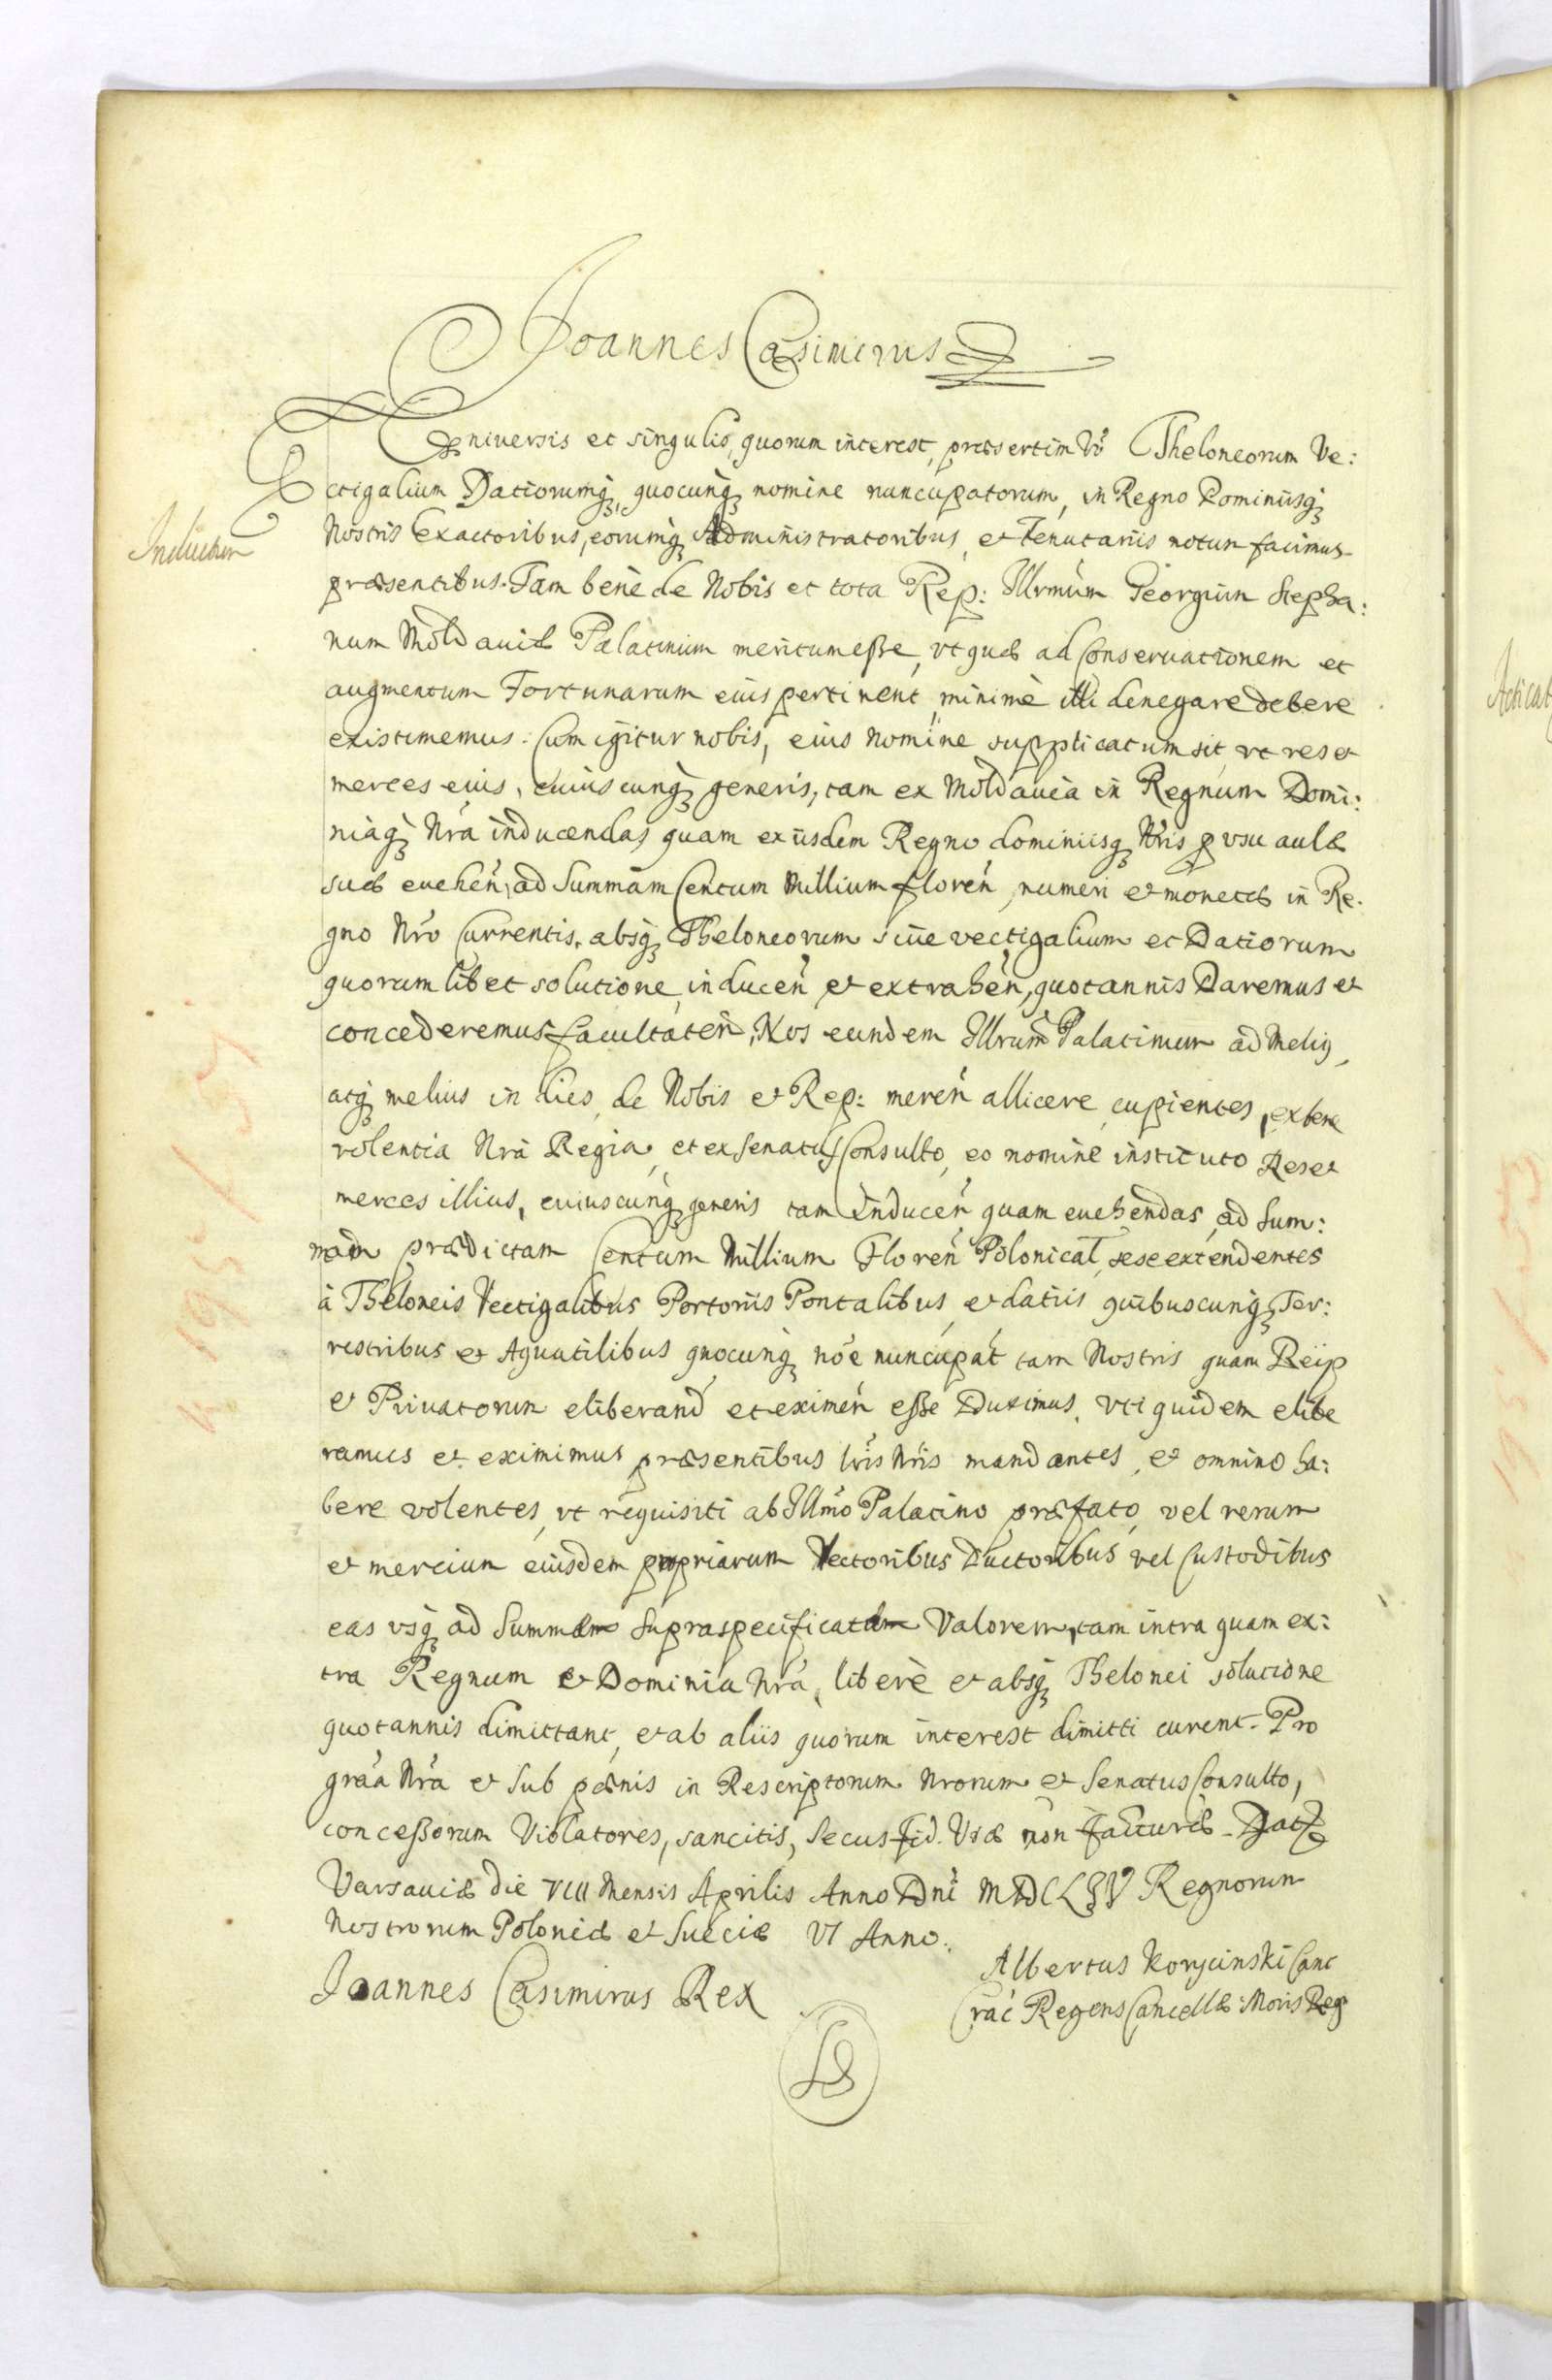 Joannes Casimirus
Vniversis et singulis, quorum interest, præsertim võ Theloneorum Ve:
ctigalium Datiorumq3, quocunq3 nomine nuncupatorum, in Regno Dominiisq3
Inductum
Nostris Exactoribus, eorumq3 Administratoribus, et Tenutariis notum facimus
præsentibus. Tam bene de Nobis et tota Rep: Illrmum Georgium Stepha:
num Moldaviæ Palatinum meritum esse, vt quæ ad Conservationem et
augmentum Fortunarum eius pertinent, minimè illi denegare debere
existimemus. Cum igitur nobis, eius nomine supplicatum sit, vt res et
merces eius, cuiuscunq3 generis, tam ex Moldavia in Regnum Domi:
niaq3 Nra inducendas quam ex iisdem Regno dominiisq3 Nris p vsu aulæ
suæ evehen, ad Summam Centum Millium floren, numeri et monetæ in Re.
gno Nro Currentis, absq3 Theloneorum siue vectigalium et Datiorum
quorumlibet solutione, inducen et extrahen, quotannis Daremus et
concederemus facultatem, Nos eundem Illrum Palatinum ad Melius,
atq3 melius in dies, de Nobis et Rep: meren allicere cupientes, ex bene
volentia Nra Regia, et ex Senatus Consulto, eo nomine instituto Res et
merces illius, cuiuscunq3 generis tam inducen quam evehendas, ad Sum:
mam prædictam Centum Millium Floren Polonical, sese extendentes
à Theloneis Vectigalibus Portoriis Pontalibus, et datiis quibuscunq3 Ter:
restribus et Aquatilibus quocunq3 noe nuncupat tam Nostris quam Reip
et Privatorum eliberand et eximen esse Duximus. Vti quidem elibe
ramus et eximimus præsentibus lris Nris mandantes, et omnino ha:
bere volentes, vt requisiti ab Illmo Palatino præfato, vel rerum
et mercium eiusdem propriarum Vectoribus Ductoribus vel Custodibus
eas vsq3 ad Summam Supraspecificatam Valorem, tam intra quam ex:
tra Regnum et Dominia Nra, liberè et absq3 Thelonei solutione
quotannis dimittant, et ab aliis quorum interest dimitti curent. Pro
graa Nra et sub pænis in Rescriptorum Nrorum et Senatus Consulto,
concessorum Violatores, sancitis, Secus fid. Vræ non facturæ. Dat
Varsaviæ die VIII Mensis Aprilis Anno Dni MDCLIV Regnorum
Nostrorum Poloniæ et Sueciæ VI Anno.
Joannes Casimirus Rex
Albertus Korycinski Canc
Crac Regens Cancellæ: Moris Reg
LS